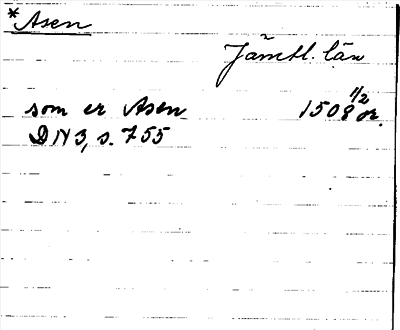 *Asen
Jämtl. län
som er Asen 1508 1/2 or.
DN 3, s. 755